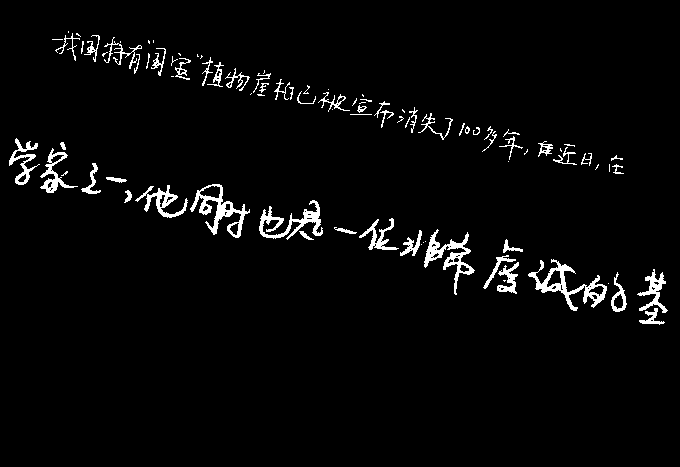 我国特有“国宝”植物崖柏已被宣布消失了100多年,但近日,在
学家之一,他同时也是一位非常虔诚的基